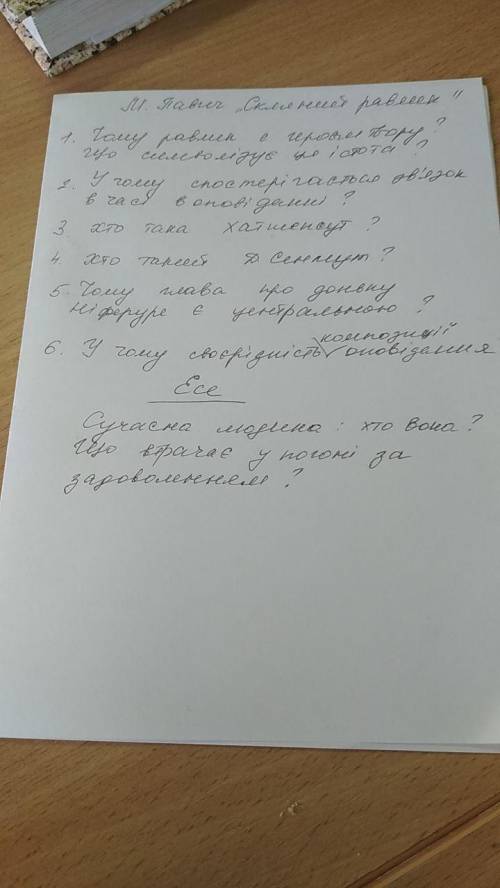 М. Павич „Скляний равлик"
1. Чому равлик є героєм твору?
Що символізує ця істота?
2. У чому спостерігається зв'язок
в часі в оповіданні?
3 Хто така Хатшепсут?
4. Хто такий Д. Сенмут?
5. Чому глава про доньку
Ніферуре є центральною?
6. У чому своєрідність композиції оповідання
Есе
Сучасна людина: хто вона?
Що втрачає у погоні за
задоволенням?